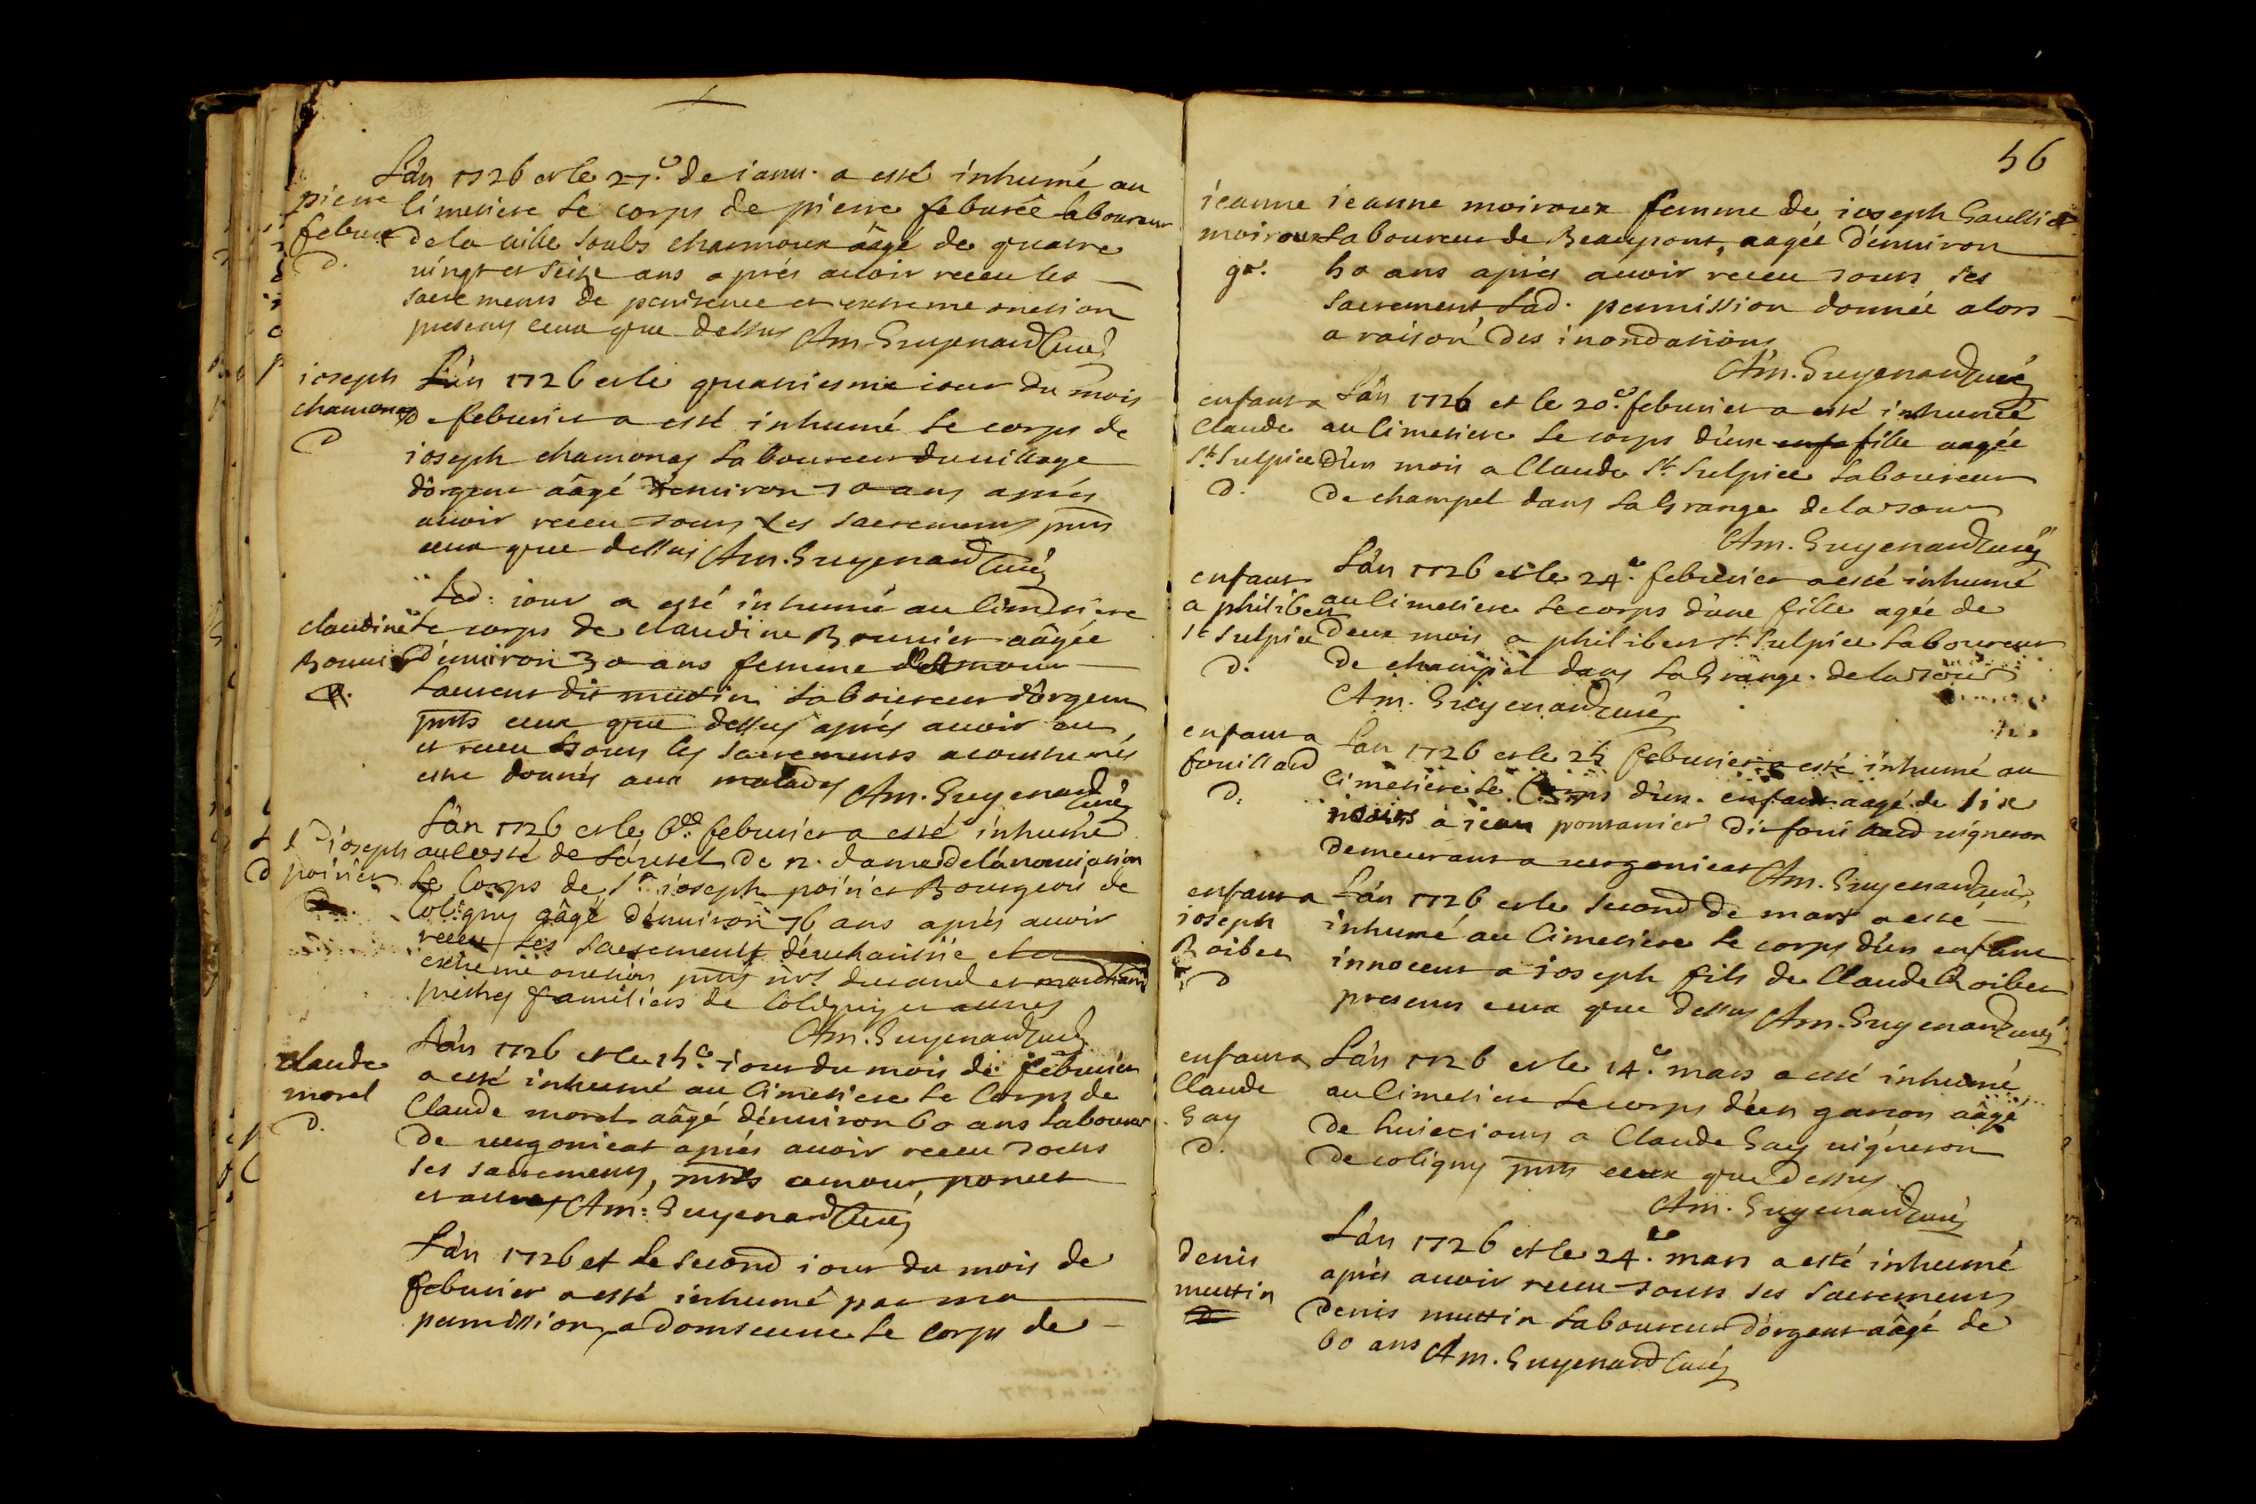 L'an 1726 et le 27.e de ianu. a esté inhumé au
pierre cimetiere le corps de pierre feburée laboureur
febure de la uille soubs charmoux âagé de quatre
d. uingt et seize ans aprés auoir receu les
sacrements de penitence et extreme onction
presents ceux que dessus Am. Guyenard Curé
ioseph L'an 1726 et le quatriesme iour du mois
chamonay de feburier a esté inhumé le corps de
d ioseph chamonay laboureur du uillage
d'orgent âagé d'enuiron 70 ans aprés
auoir receu tous les sacrements pnts
ceux que dessus Am. Guyenard Curé
Led: iour a esté inhumé au Cimetiere
claudine le corps de claudine Brunier aâgée
d'enuiron 30 ans femme d'Amour
Laurent dit muttin laboureur d'orgent
pnts ceux que dessus aprés auoir eu
et receu tous les sacrements acoustumés
estre donnés aux malades Am. Guyenard Curé
L'an 1726 et le feburier a esté inhumé
Sr ioseph au costé de l'autel de n. dame de l'anonciation
poirier le Corps de Sr. ioseph poirier Bourgeois de
Coligny aâgé d'enuiron 76 ans aprés auoir
receu les sacrements d'euchaistie et
extreme onction pnts mrs durand et
prestres familiers de Coligny et autres
Am. Guyenard Curé
claude L'an 1726 et le 15.e iour du mois de feburier
morel a esté inhumé au Cimetiere le Corps de
d. Claude morel aâgé d'enuiron 60 ans laboureur
de uergonicat aprés auoir receu tous
les sacrements, pnts amour poncet
et autres Am: Guyenard Curé
L'an 1726 et le second iour du mois de
feburier a esté inhumé par ma
permission, a domseure le Corps de
56
ieanne ieanne moiroux femme de ioseph Gaulliet
moiroux laboureur de Beaupont, aagée d'enuiron
gr. 50 ans aprés auoir receu tous les
sacrement lad. permission donnée alors
a raison des inondations
Am. Guyenard Curé
enfant a L'an 1726 et le 20.e feburier a esté inhumée
Claude au Cimetiere le corps d'une enfe fille aagée
St. Sulpice d'un mois a Claude St. Sulpice laboureur
d. de champel dans la Grange de la tour
Am. Guyenard Curé
enfant L'an 1726 et le 24.e feburier a esté inhumé
a philibert au Cimetiere le corps d'une fille agée de
St Sulpice deux mois a philibert St. Sulpice laboureur
d. de champel dans la Grange de la tour
Am. Guyenard Curé
enfant a L'an 1726 et le 25 feburier a esté inhumé au
fouillard Cimetiere le Corps d'un enfant aagé de six
d. mois à iean pontanier dit fouillard uigneron
demeurant a uergonicat Am. Guyenard Curé
enfant a L'an 1726 et le second de mars a esté
ioseph inhumé au Cimetiere le corps d'un enfant
Roibet innocent a ioseph fils de Claude Roibet
d presents ceux que dessus Am. Guyenard Curé
enfant a L'an 1726 et le 14.e mars a esté inhumé
Claude au Cimetiere le corps d'un garcon aâgé
Gay de huict iours a Claude Gay uigneron
d. de coligny pnts ceux que dessus
Am. Guyenard Curé
L'an 1726 et le 24.e mars a esté inhumé
denis aprés auoir receu tous les sacrements
muttin denis muttin laboureur d'orgent aâgé de
60 ans Am. Guyenard Curé